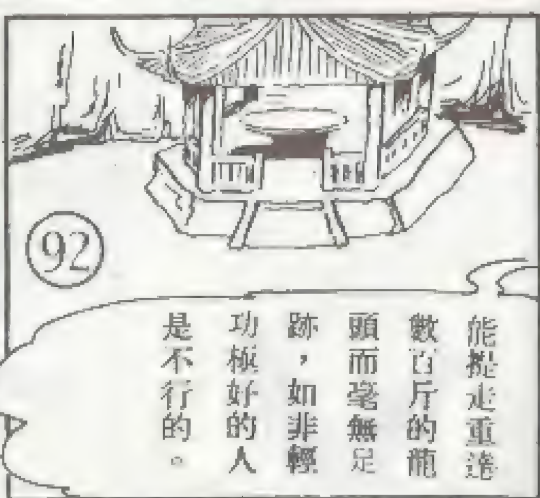 92
能提走重達
數百斤的龍
頭而毫無足
跡，如非輕
功極好的人
是不行的。